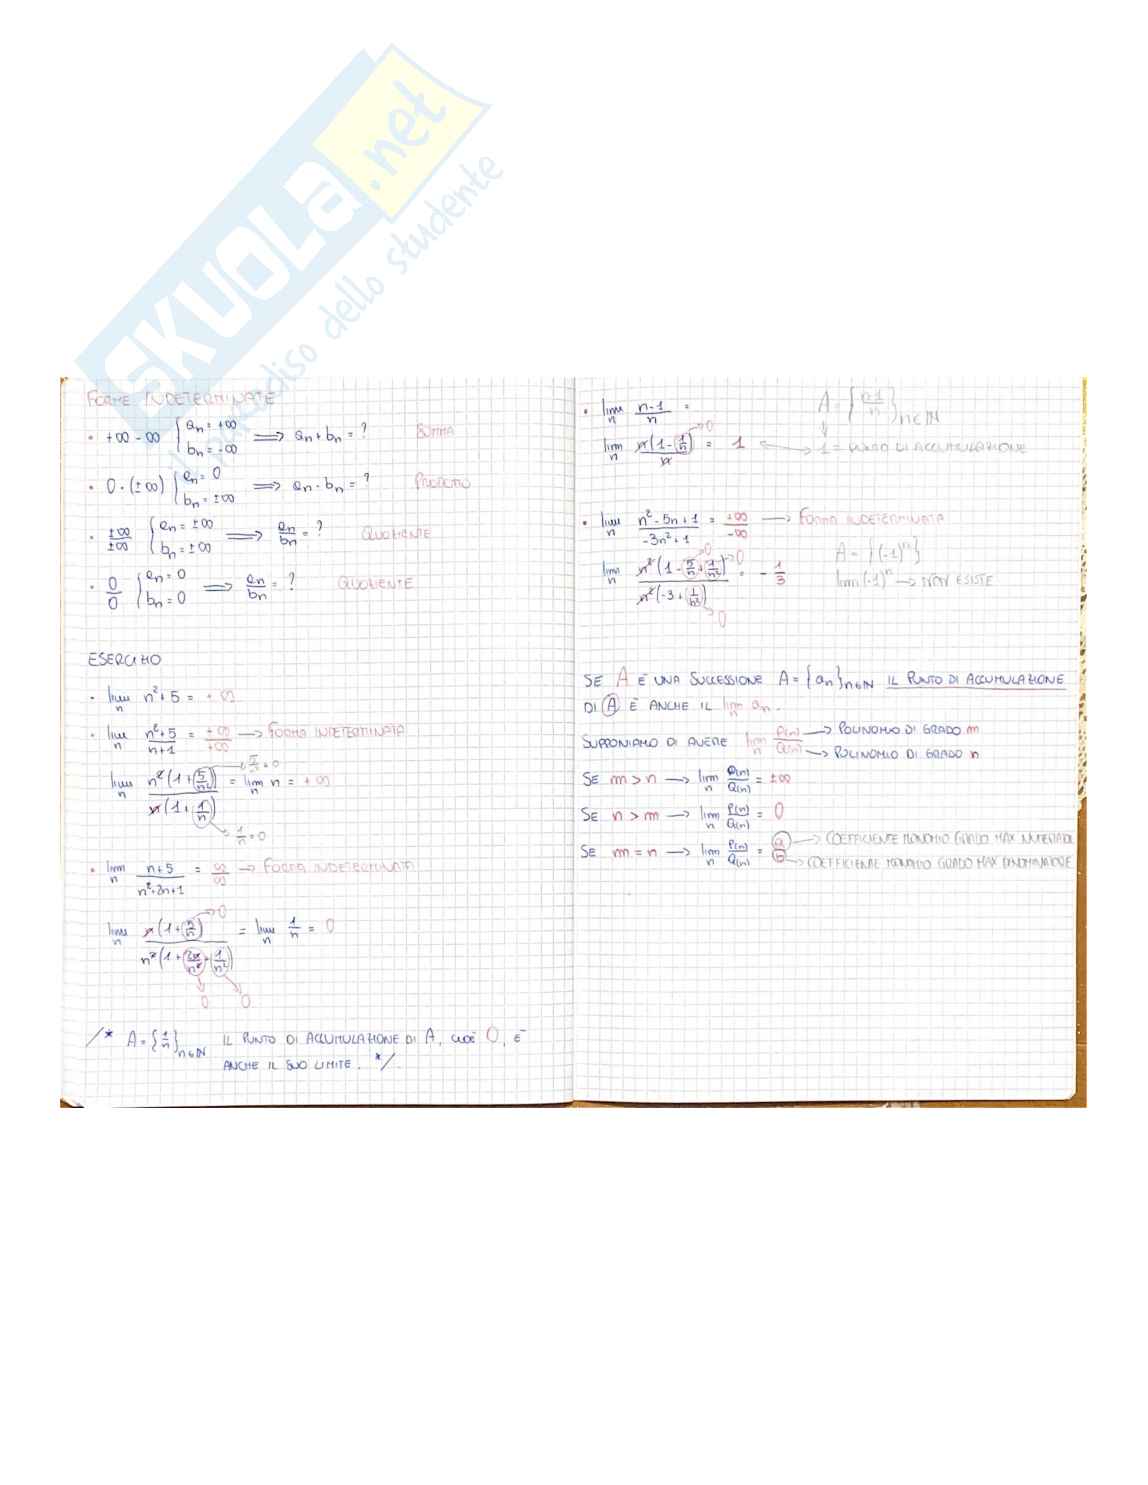 SKUOLA.net
paradiso dello studente
FORME INDETERMINATE
• +∞ - ∞ { an = +∞ bn = -∞ ⟹ an + bn = ? SOMMA
• 0 · (±∞) { an = 0 bn = ±∞ ⟹ an · bn = ? PRODOTTO
• ±∞/±∞ { an = ±∞ bn = ±∞ ⟹ an/bn = ? QUOZIENTE
• 0/0 { an = 0 bn = 0 ⟹ an/bn = ? QUOZIENTE
ESERCIZIO
• lim n n²+5 = +∞
• lim n (n²+5)/(n+1) = +∞/+∞ → FORMA INDETERMINATA
lim n n²(1+5/n²)/n(1+1/n) = lim n n = +∞
5/n² = 0
1/n = 0
• lim n (n+5)/(n²+2n+1) = ∞/∞ → FORMA INDETERMINATA
lim n n(1+5/n)/n²(1+2n/n²+1/n²) = lim n 1/n = 0
0
0 0
/* A = {1/n} n∈N IL PUNTO DI ACCUMULAZIONE DI A, CIOÈ 0, È
ANCHE IL SUO LIMITE. */
• lim n (n-1)/n =
A = {(n-1)/n} n∈N
lim n n(1-1/n)/n = 1 ↔ 1 = PUNTO DI ACCUMULAZIONE
0
• lim n (n²-5n+1)/(-3n²+1) = +∞/-∞ → FORMA INDETERMINATA
lim n n²(1-5/n+1/n²)/n²(-3+1/n²) = -1/3
0 0
0
A = {(-1)ⁿ}
lim (-1)ⁿ → NON ESISTE
SE A È UNA SUCCESSIONE A = {an} n∈N IL PUNTO DI ACCUMULAZIONE
DI A È ANCHE IL lim n an.
SUPPONIAMO DI AVERE lim n P(n)/Q(n) → POLINOMIO DI GRADO m
→ POLINOMIO DI GRADO n
SE m > n → lim n P(n)/Q(n) = ±∞
SE n > m → lim n P(n)/Q(n) = 0
SE m = n → lim n P(n)/Q(n) = a/b → COEFFICIENTE MONOMIO GRADO MAX NUMERATORE
→ COEFFICIENTE MONOMIO GRADO MAX DENOMINATORE